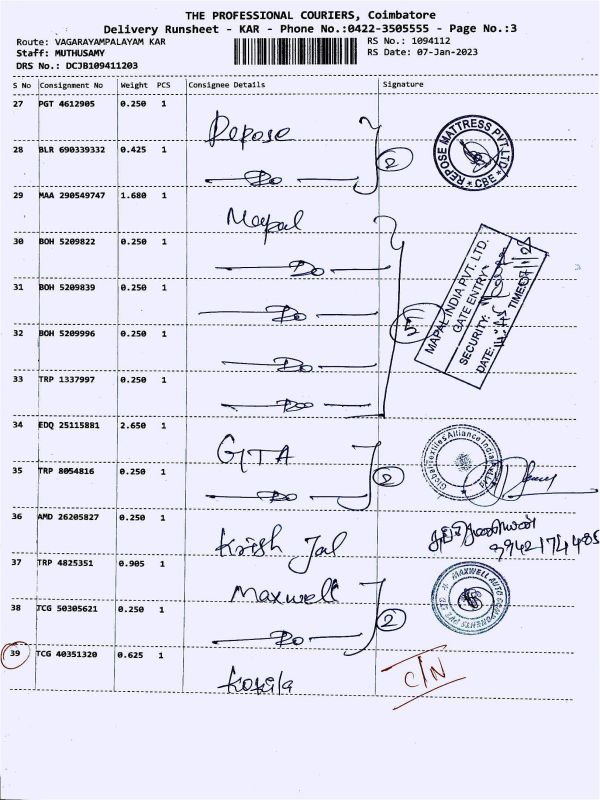 THE PROFESSIONAL COURIERS, Coimbatore
Delivery Runsheet - KAR - Phone No.:0422-3505555 - Page No.:3
Route: VAGARAYAMPALAYAM KAR RS No.: 1094112
Staff: MUTHUSAMY RS Date: 07-Jan-2023
DRS No.: DCJB109411203
S No Consignment No Weight PCS Consignee Details Signature
27 PGT 4612905 0.250 1 Repose
REPOSE MATTRESS PVT LTD * CBE *
28 BLR 690339332 0.425 1 Do 2
29 MAA 290549747 1.680 1 Mapal
30 BOH 5209822 0.250 1 Do
31 BOH 5209839 0.250 1 Do 5
MAPAL INDIA PVT. LTD.
GATE ENTRY
SECURITY:
DATE: TIME:
32 BOH 5209996 0.250 1 Do
33 TRP 1337997 0.250 1 Do
34 EDQ 25115881 2.650 1 GTA
Global Textiles Alliance India
35 TRP 8054816 0.250 1 Do 2
36 AMD 26205827 0.250 1 Krish Jal
37 TRP 4825351 0.905 1 Maxwell
MAXWELL AUTO COMPONENTS PVT LTD
38 TCG 50305621 0.250 1 Do 2
39 TCG 40351320 0.625 1 Kokila C/N